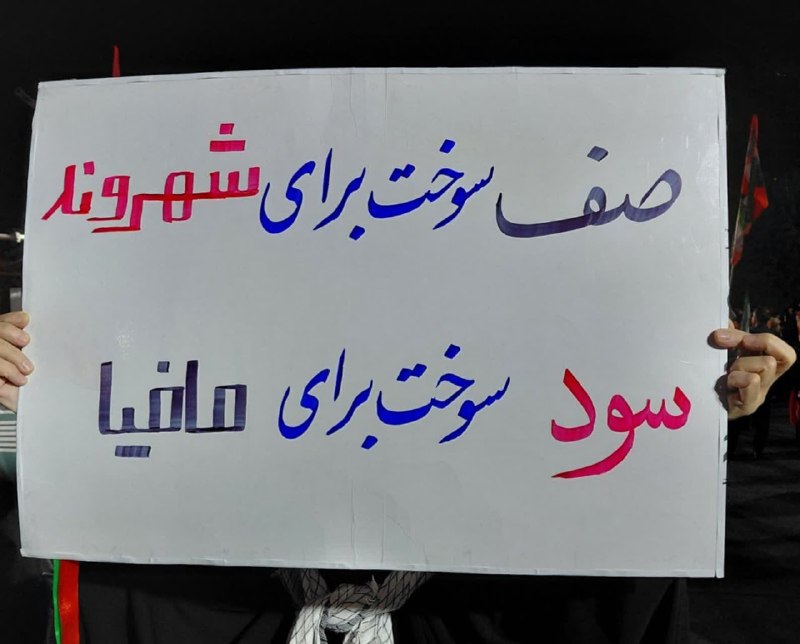 صف سوخت برای شهروند
سود سوخت برای مافیا